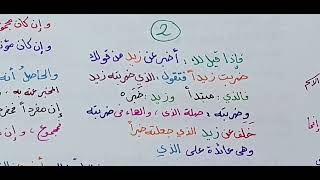 2
فإذا قيل لك: أخبر عن زيد من قولك
ضربت زيداً فتقول: الذي ضربته زيد
فالذي: مبتدأ وزيد: خبره
وضربته: صلة الذي، والهاء في ضربته
خلف عن زيد الذي جعلته خبراً
وهي عائدة على الذي
وإن كان
وإن كان مؤنثـ
والحاصل أنه
المخبر عنه به
إن مفرداً فمفرد
فمجموع، وإن